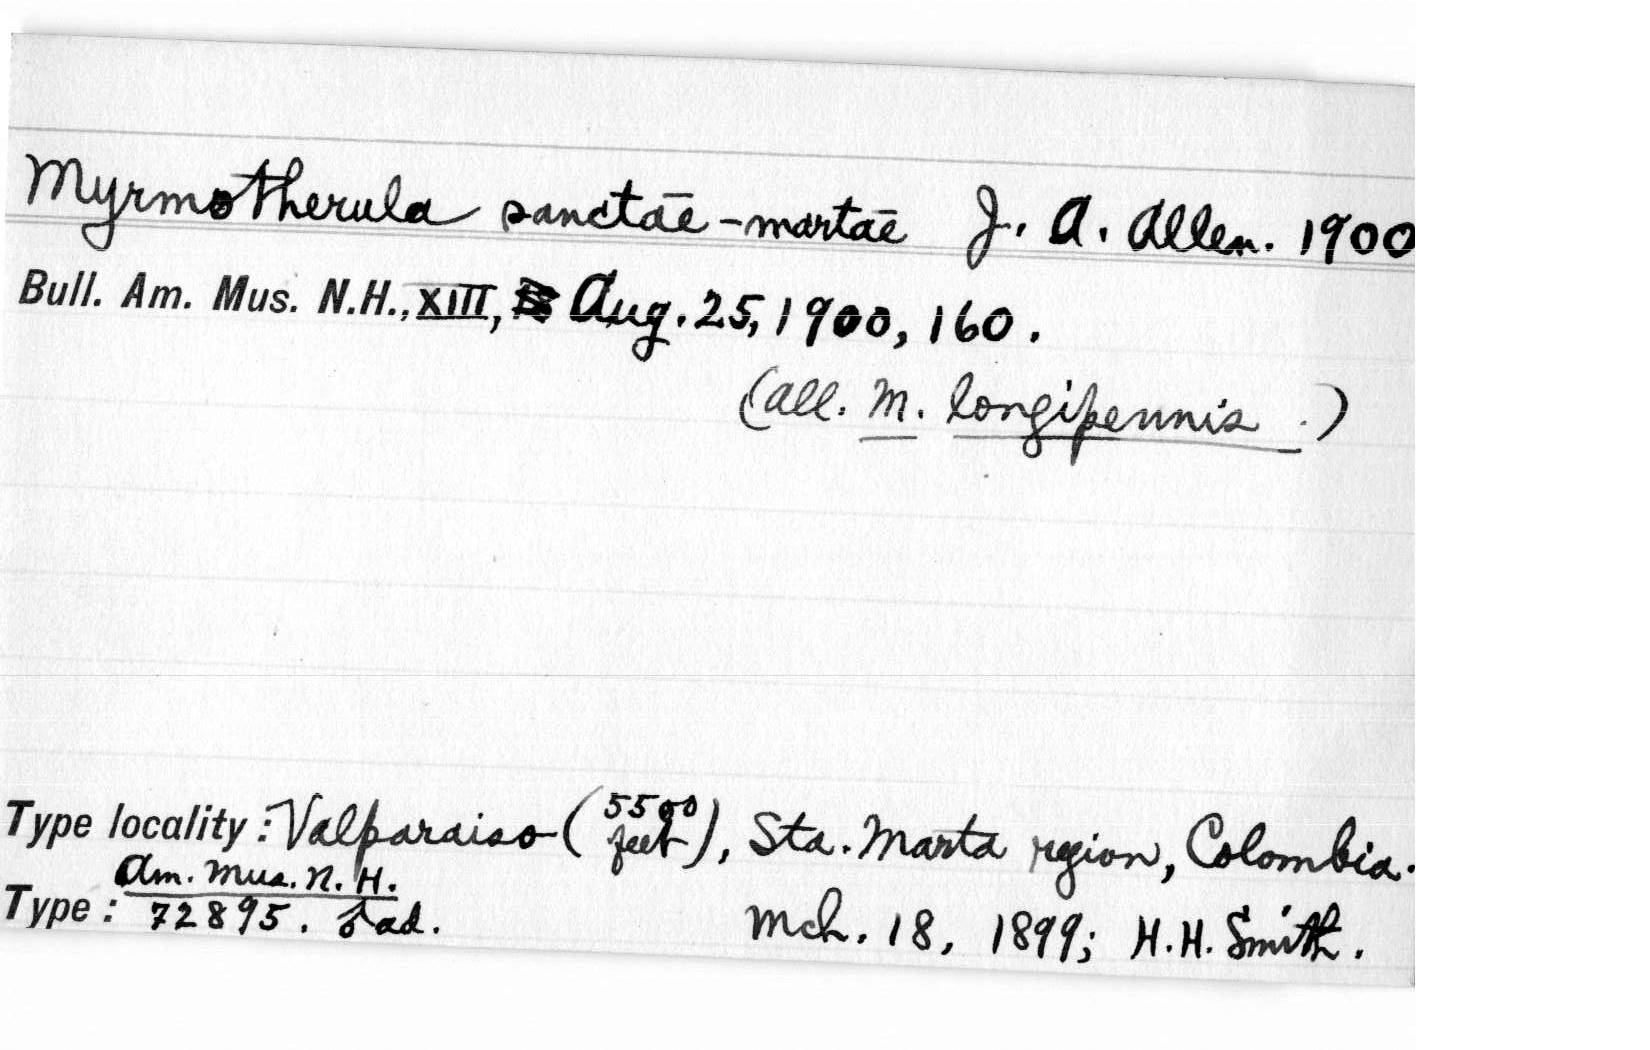 Myrmotherula sanctae-martae J. A. Allen. 1900
Bull. Am. Mus. N.H., XIII, Aug. 25, 1900, 160.
(all. M. longipennis.)
Type locality: Valparaiso (5500 feet), Sta. Marta region, Colombia.
Type: Am. Mus. N. H. 72895. ♂ ad. Mch. 18, 1899; H.H. Smith.